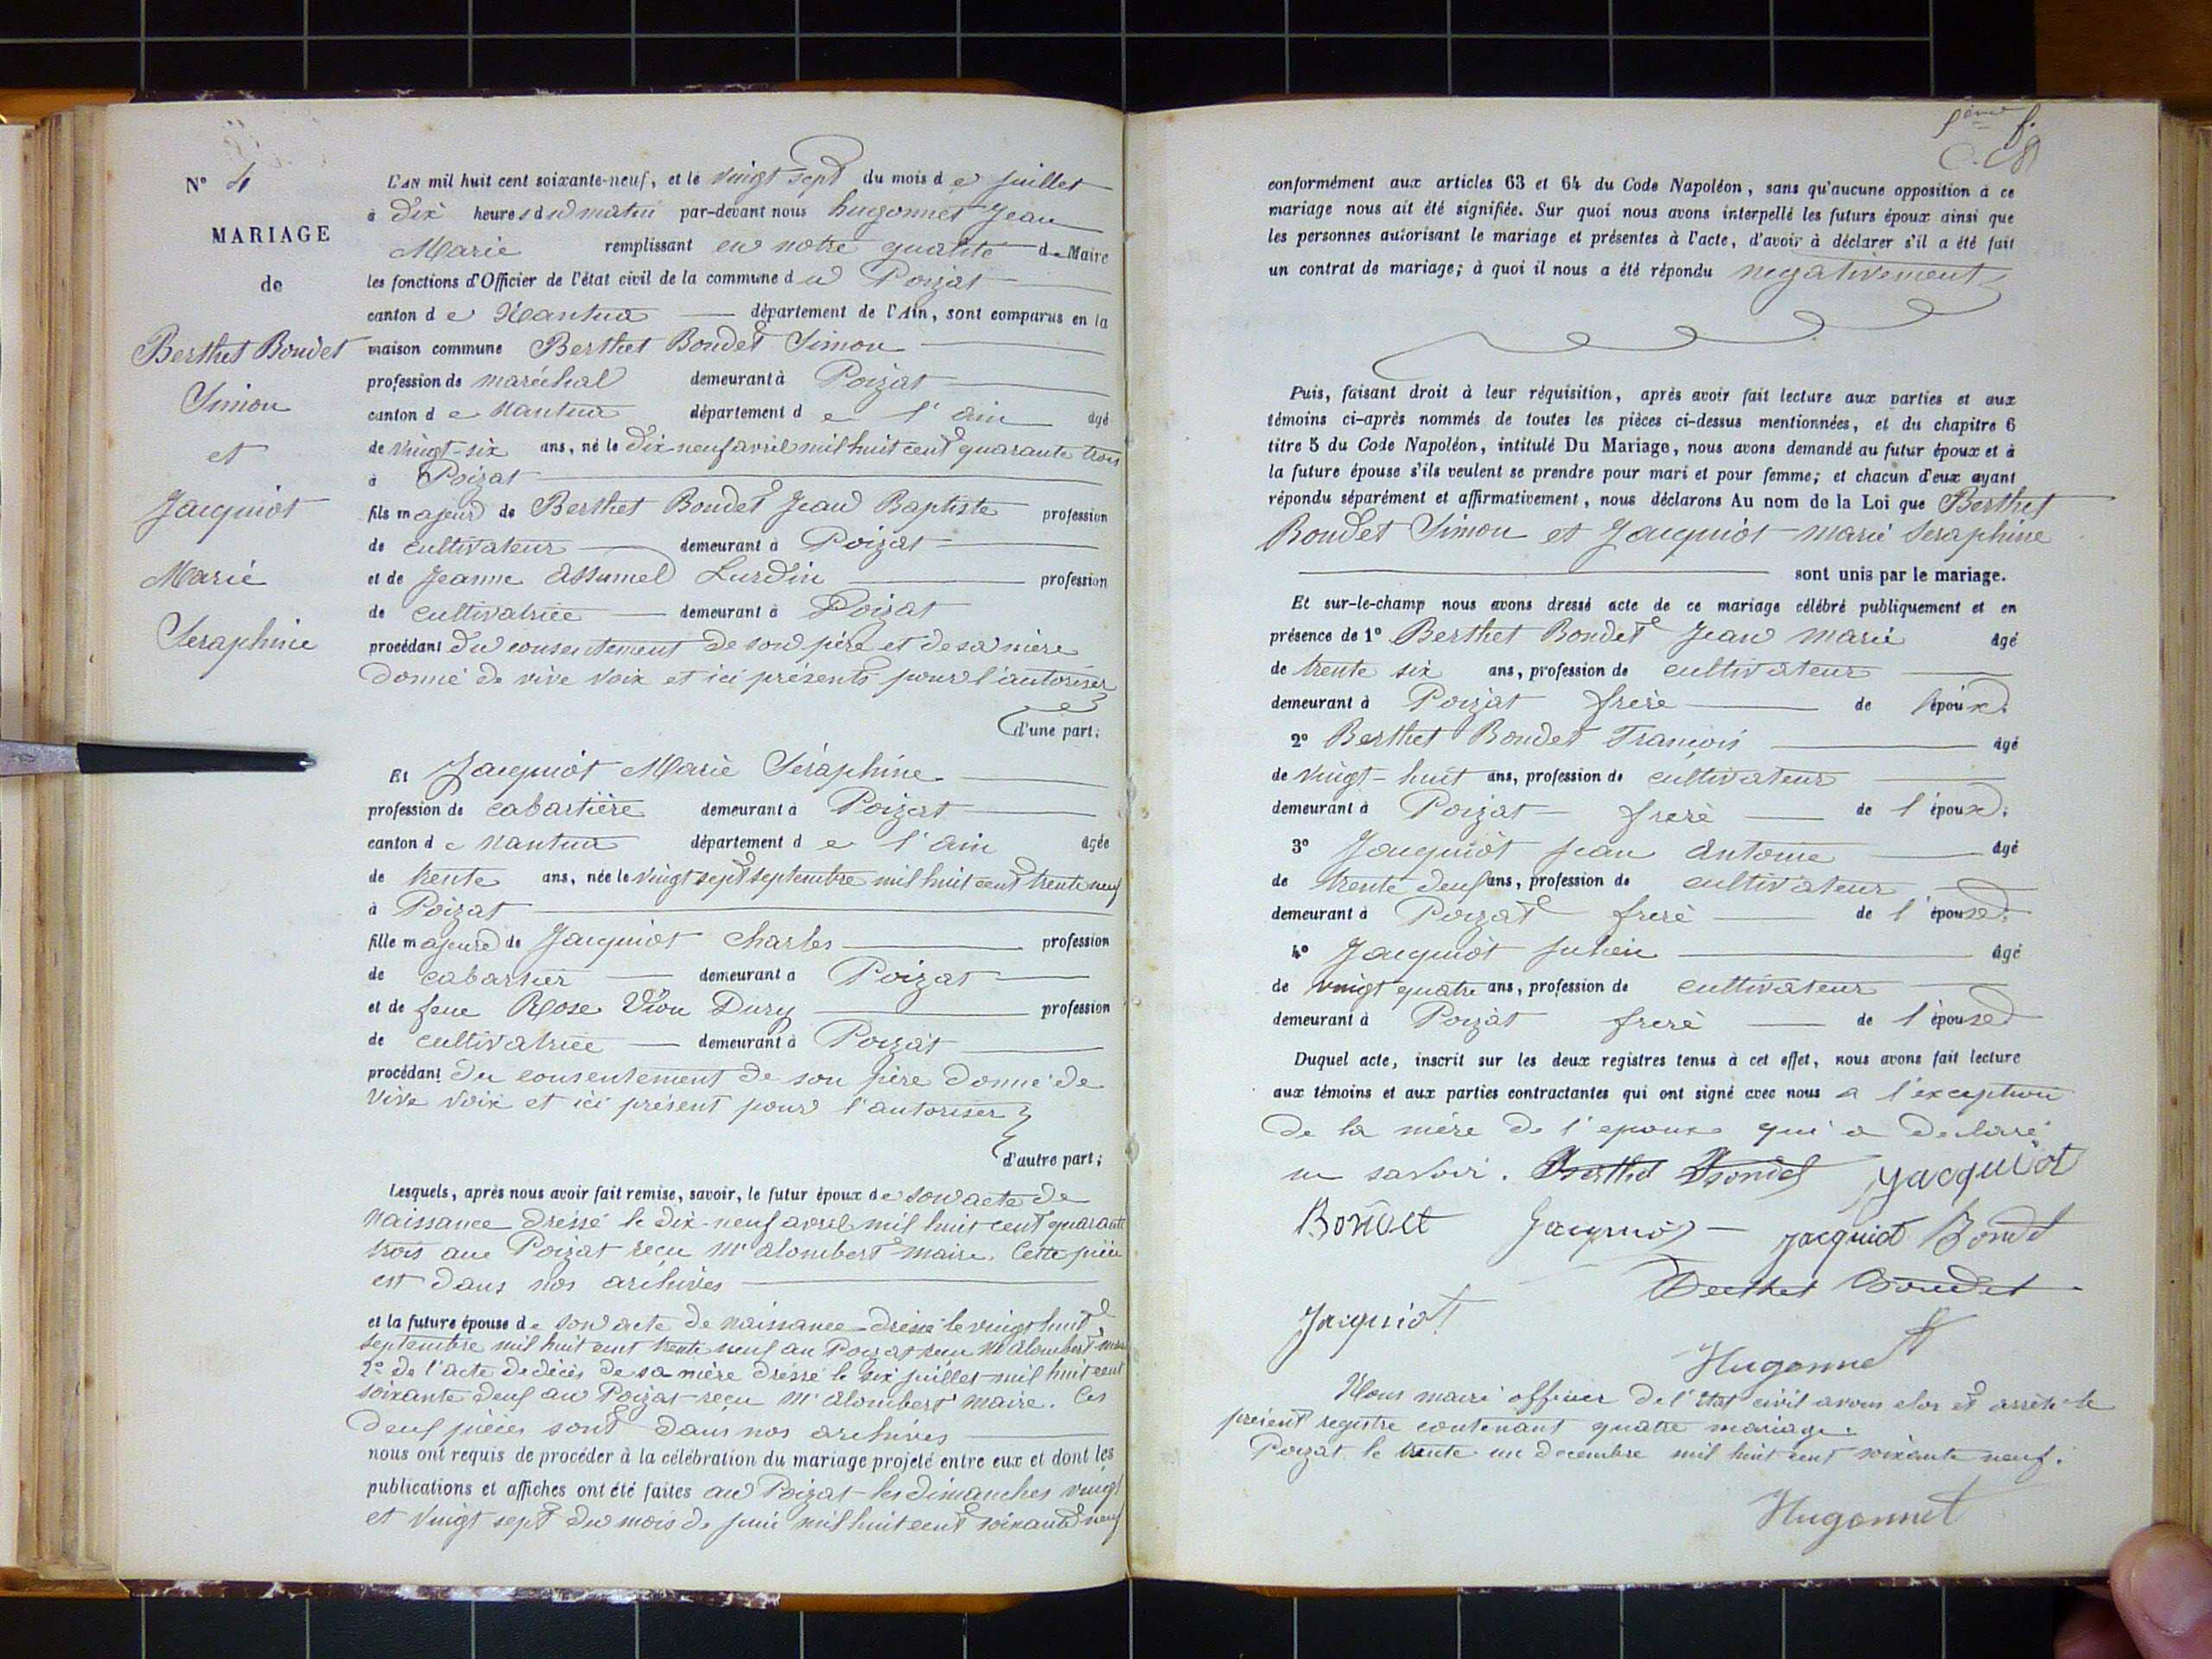 N° 4
MARIAGE
de
Berthet Bondet
Simon
et
Jacquiot
Marie
Seraphine
L'AN mil huit cent soixante-neuf, et le vingt sept du mois de juillet
à Dix heures du matin par-devant nous hugonnet Jean
Marie remplissant en notre qualité de Maire
les fonctions d'Officier de l'état civil de la commune du Poizat
canton de Nantua département de l'Ain, sont comparus en la
maison commune Berthet Bondet Simon
profession de maréchal demeurant à Poizat
canton de Nantua département de l'ain âgé
de vingt-six ans, né le Dix neuf avril mil huit cent quarante trois
à Poizat
fils majeur de Berthet Bondet Jean Baptiste profession
de cultivateur demeurant à Poizat
et de Jeanne Assumel Lurdin profession
de cultivatrice demeurant à Poizat
procédant Du consentement de son père et de sa mère
donné de vive voix et ici présents pour l'autoriser
d'une part;
Et Jacquiot Marie Séraphine
profession de cabartière demeurant à Poizat
canton de Nantua département de l'ain âgée
de trente ans, née le vingt sept septembre mil huit cent trente neuf
à Poizat
fille majeure de Jacquiot Charles profession
de cabartier demeurant à Poizat
et de feue Rose Vion Dury profession
de cultivatrice demeurant à Poizat
procédant du consentement de son père donné de
vive voix et ici présent pour l'autoriser
d'autre part;
Lesquels, après nous avoir fait remise, savoir, le futur époux de son acte de
Naissance dressé le dix-neuf avril mil huit cent quarante
trois au Poizat reçu Mr alombert maire. Cette pièce
est dans nos archives
et la future épouse de son acte de naissance dressé le vingt huit
septembre mil huit cent trente neuf au Poizat reçu Mr alombert maire
2° de l'acte de décès de sa mère dressé le six juillet mil huit cent
soixante deuf au Poizat reçu Mr alombert maire. Ces
deuf pièces sont dans nos archives
nous ont requis de procéder à la célébration du mariage projeté entre eux et dont les
publications et affiches ont été faites au Poizat les dimanches vingt
et vingt sept du mois de juin mil huit cent soixante neuf
conformément aux articles 63 et 64 du Code Napoléon, sans qu'aucune opposition à ce
mariage nous ait été signifiée. Sur quoi nous avons interpellé les futurs époux ainsi que
les personnes autorisant le mariage et présentes à l'acte, d'avoir à déclarer s'il a été fait
un contrat de mariage; à quoi il nous a été répondu négativement
Puis, faisant droit à leur réquisition, après avoir fait lecture aux parties et aux
témoins ci-après nommés de toutes les pièces ci-dessus mentionnées, et du chapitre 6
titre 5 du Code Napoléon, intitulé Du Mariage, nous avons demandé au futur époux et à
la future épouse s'ils veulent se prendre pour mari et pour femme; et chacun d'eux ayant
répondu séparément et affirmativement, nous déclarons Au nom de la Loi que Berthet
Bondet Simon et Jacquiot marie Seraphine
sont unis par le mariage.
Et sur-le-champ nous avons dressé acte de ce mariage célébré publiquement et en
présence de 1° Berthet Bondet Jean Marie âgé
de trente six ans, profession de cultivateur
demeurant à Poizat frere de l'époux.
2° Berthet Bondet François âgé
de vingt-huit ans, profession de cultivateur
demeurant à Poizat frere de l'époux.
3° Jacquiot Jean Antoine âgé
de trente deuf ans, profession de cultivateur
demeurant à Poizat frere de l'épouse.
4° Jacquiot Julien âgé
de vingt quatre ans, profession de cultivateur
demeurant à Poizat frere de l'épouse
Duquel acte, inscrit sur les deux registres tenus à cet effet, nous avons fait lecture
aux témoins et aux parties contractantes qui ont signé avec nous a l'exception
de la mère de l'epoux qui a declaré
ne savoir. Berthet Bondet Jacquiot
Bondet Jacquiot jacquiot Bondet
Berthet Bondet
Jacquiot
Hugonnet
Nous maire officier de l'état civil avons clos et arrêté le
présent registre contenant quatre mariage.
Poizat le trente un decembre mil huit cent soixante neuf.
Hugonnet